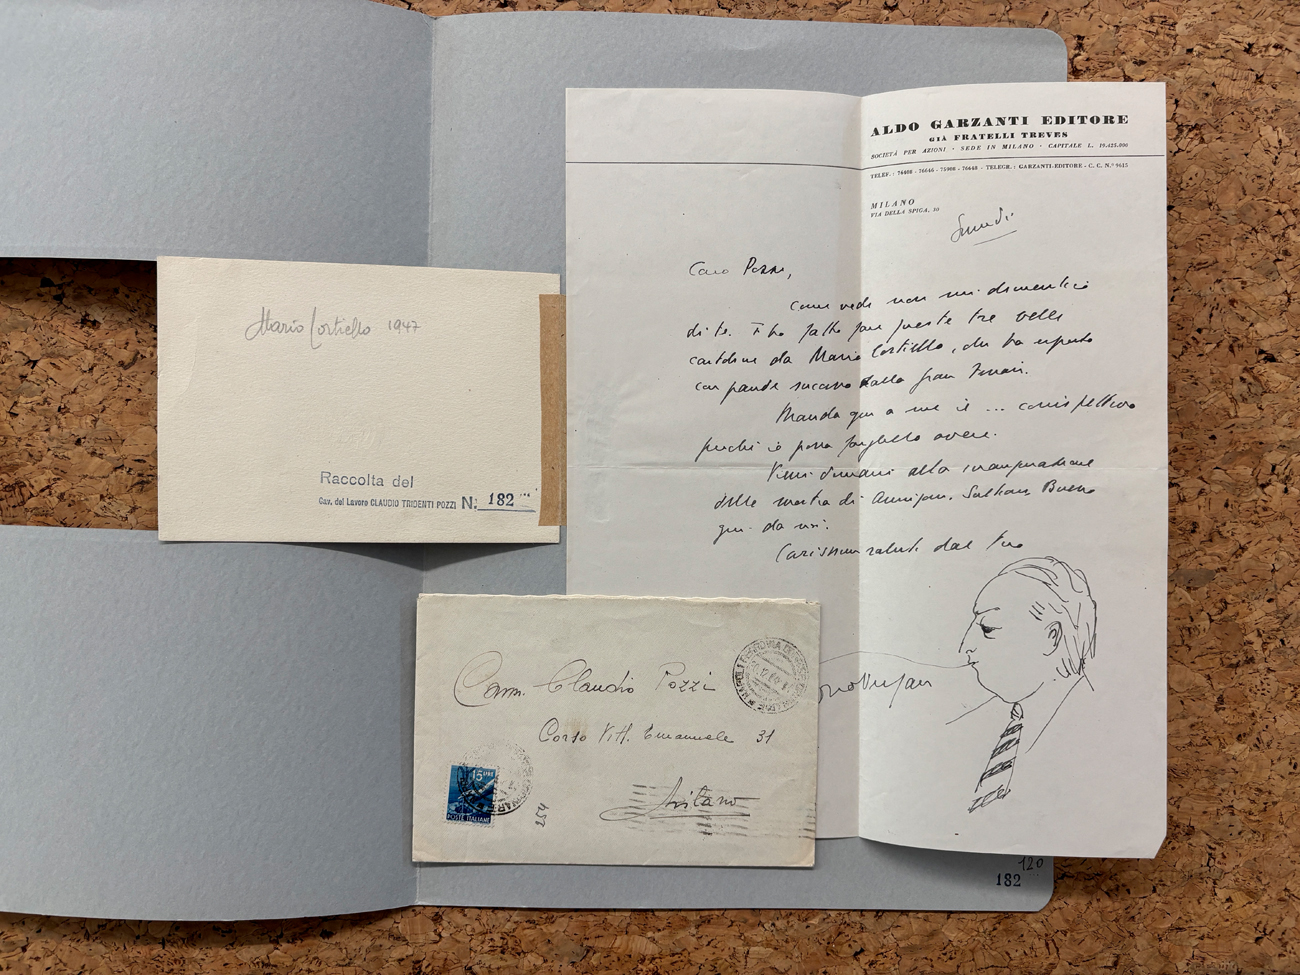 ALDO GARZANTI EDITORE
GIÀ FRATELLI TREVES
SOCIETÀ PER AZIONI · SEDE IN MILANO · CAPITALE L. 19.425.000
TELEF.: 76408 - 76646 - 75908 - 76648 - TELEGR.: GARZANTI-EDITORE - C. C. N.° 9615
MILANO
VIA DELLA SPIGA, 30
Caro Pozzi,
come vedi non mi dimentico
di te. Ti ho fatto fare queste tre belle
cartoline da Mario Cortiello, che ha esposto
con grande successo alla Gran
Manda qui a me il ... corrispettivo
perché io possa farglielo avere.
Vieni domani alla inaugurazione
della mostra di Annigoni.
qui da noi.
Carissimi saluti dal tuo
Mario Cortiello 1947
Raccolta del
Cav. del Lavoro CLAUDIO TRIDENTI POZZI N. 182
Comm. Claudio Pozzi
Corso Vitt. Emanuele 31
Milano
15 LIRE
POSTE ITALIANE
120
182